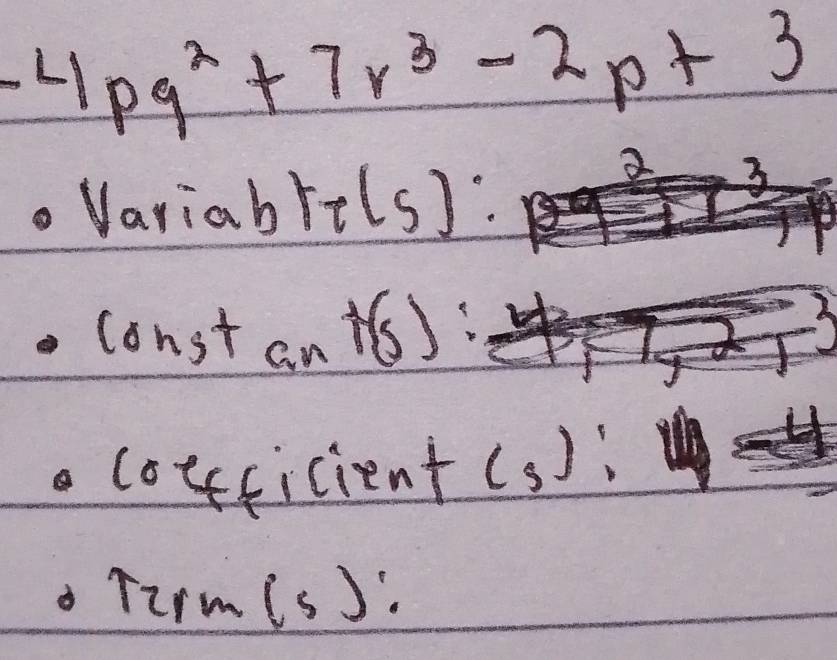 -4pq² + 7r³ - 2p + 3
• Variable(s): pq², r³, p
• Constant(s): 4, 7, 2, 3
• Coefficient(s): -4
• Term(s):